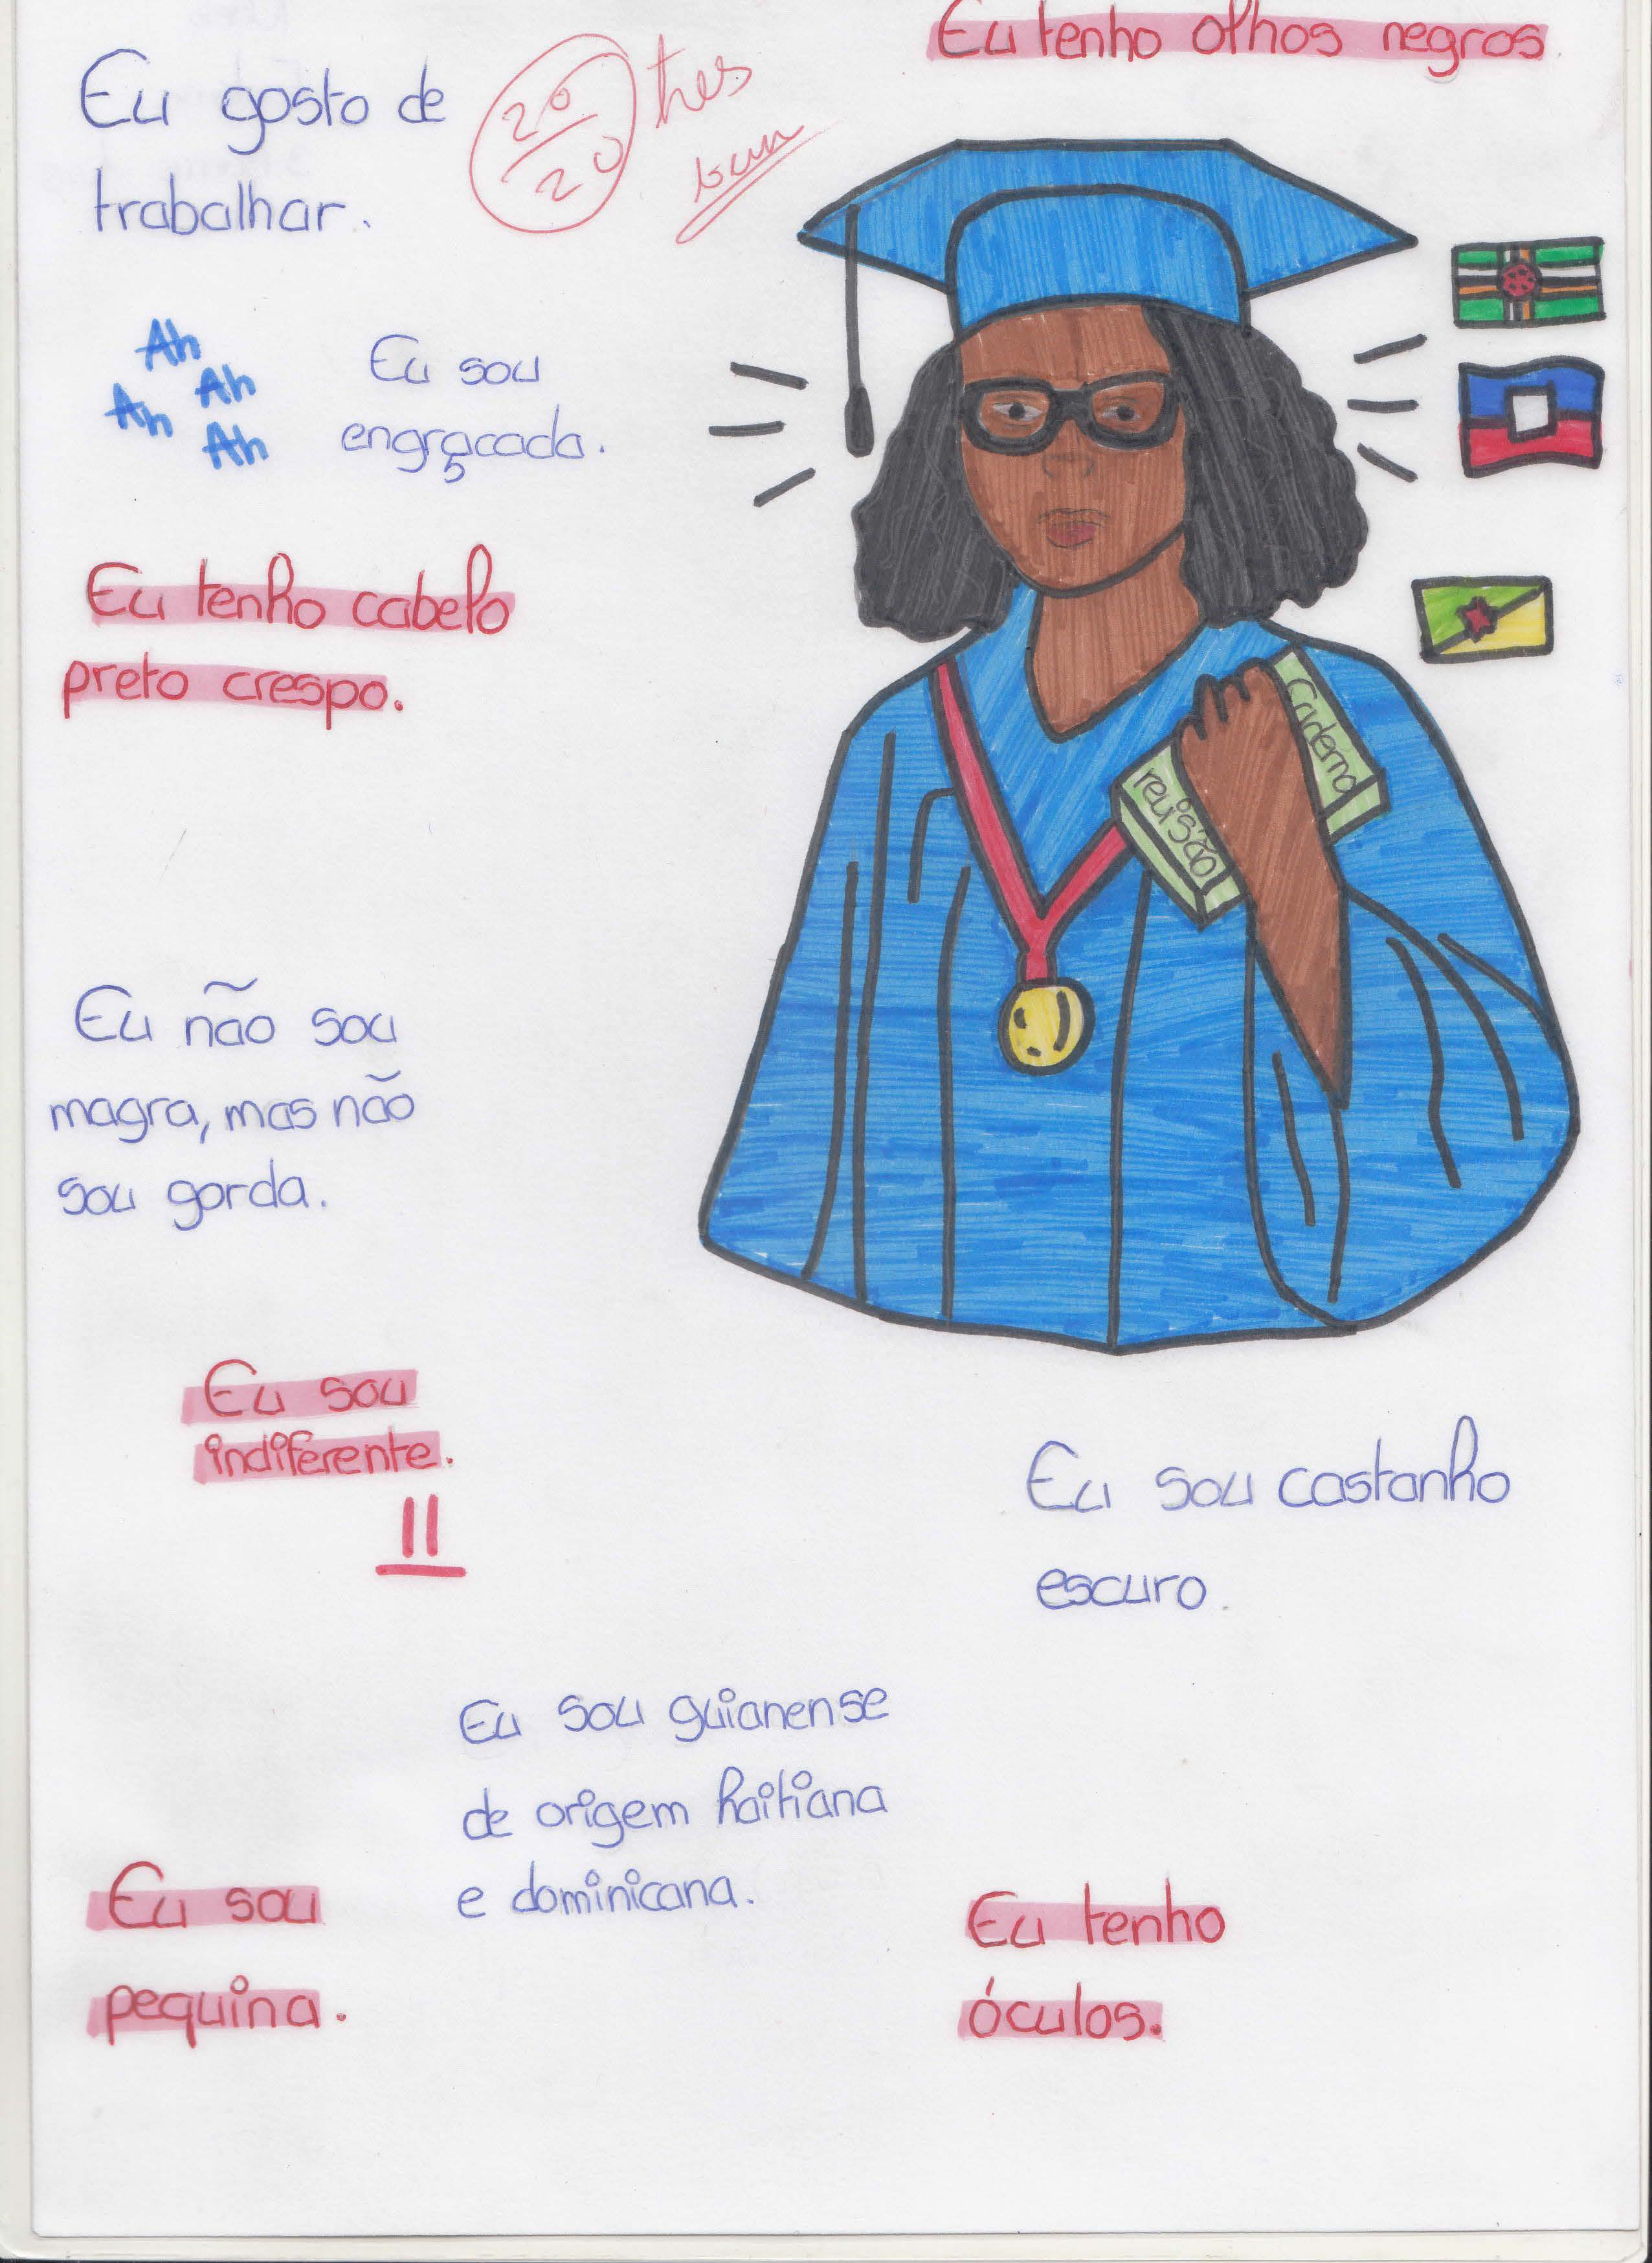 Eu tenho olhos negros.
Eu gosto de
trabalhar.
20
20
tres
bien
Ah
Ah
Ah
Ah
Eu sou
engraçada.
Eu tenho cabelo
preto crespo.
caderno
revisão
Eu não sou
magra, mas não
sou gorda.
Eu sou
indiferente.
Eu sou castanho
escuro.
Eu sou guianense
de origem haitiana
e dominicana.
Eu sou
pequina.
Eu tenho
óculos.